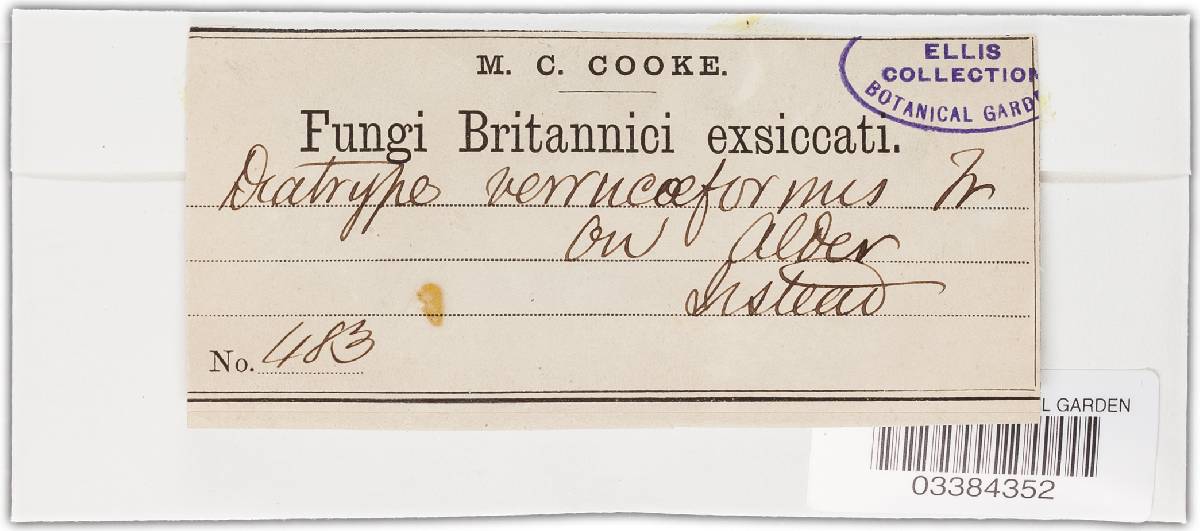 M. C. COOKE.
ELLIS
COLLECTION
BOTANICAL GARD
Fungi Britannici exsiccati.
Diatrype verrucæformis Fr
on Alder
Irstead
No. 483
L GARDEN
03384352